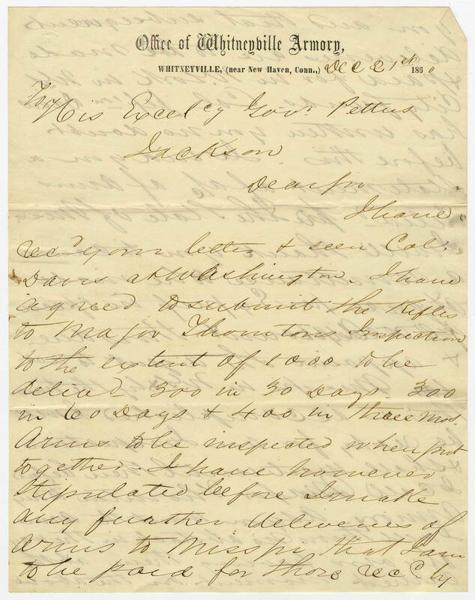 Office of Whitneyville Armory,
WHITNEYVILLE, (near New Haven, Conn.,) Dec 21st 1860
To His Excelcy Govr. Pettus
Jackson
Dear Sir
I have
recd your letter & seen Col.
Davis at Washington. I have
agreed to submit the Rifles
to Major Thorntons Inspection
to the extent of 1000 to be
delivd 300 in 30 Days 300
in 60 Days & 400 in three mos.
Arms to be inspected when put
together. I have however
stipulated before I make
any further deliveries of
arms to Misspi that I am
to be paid for those recd by